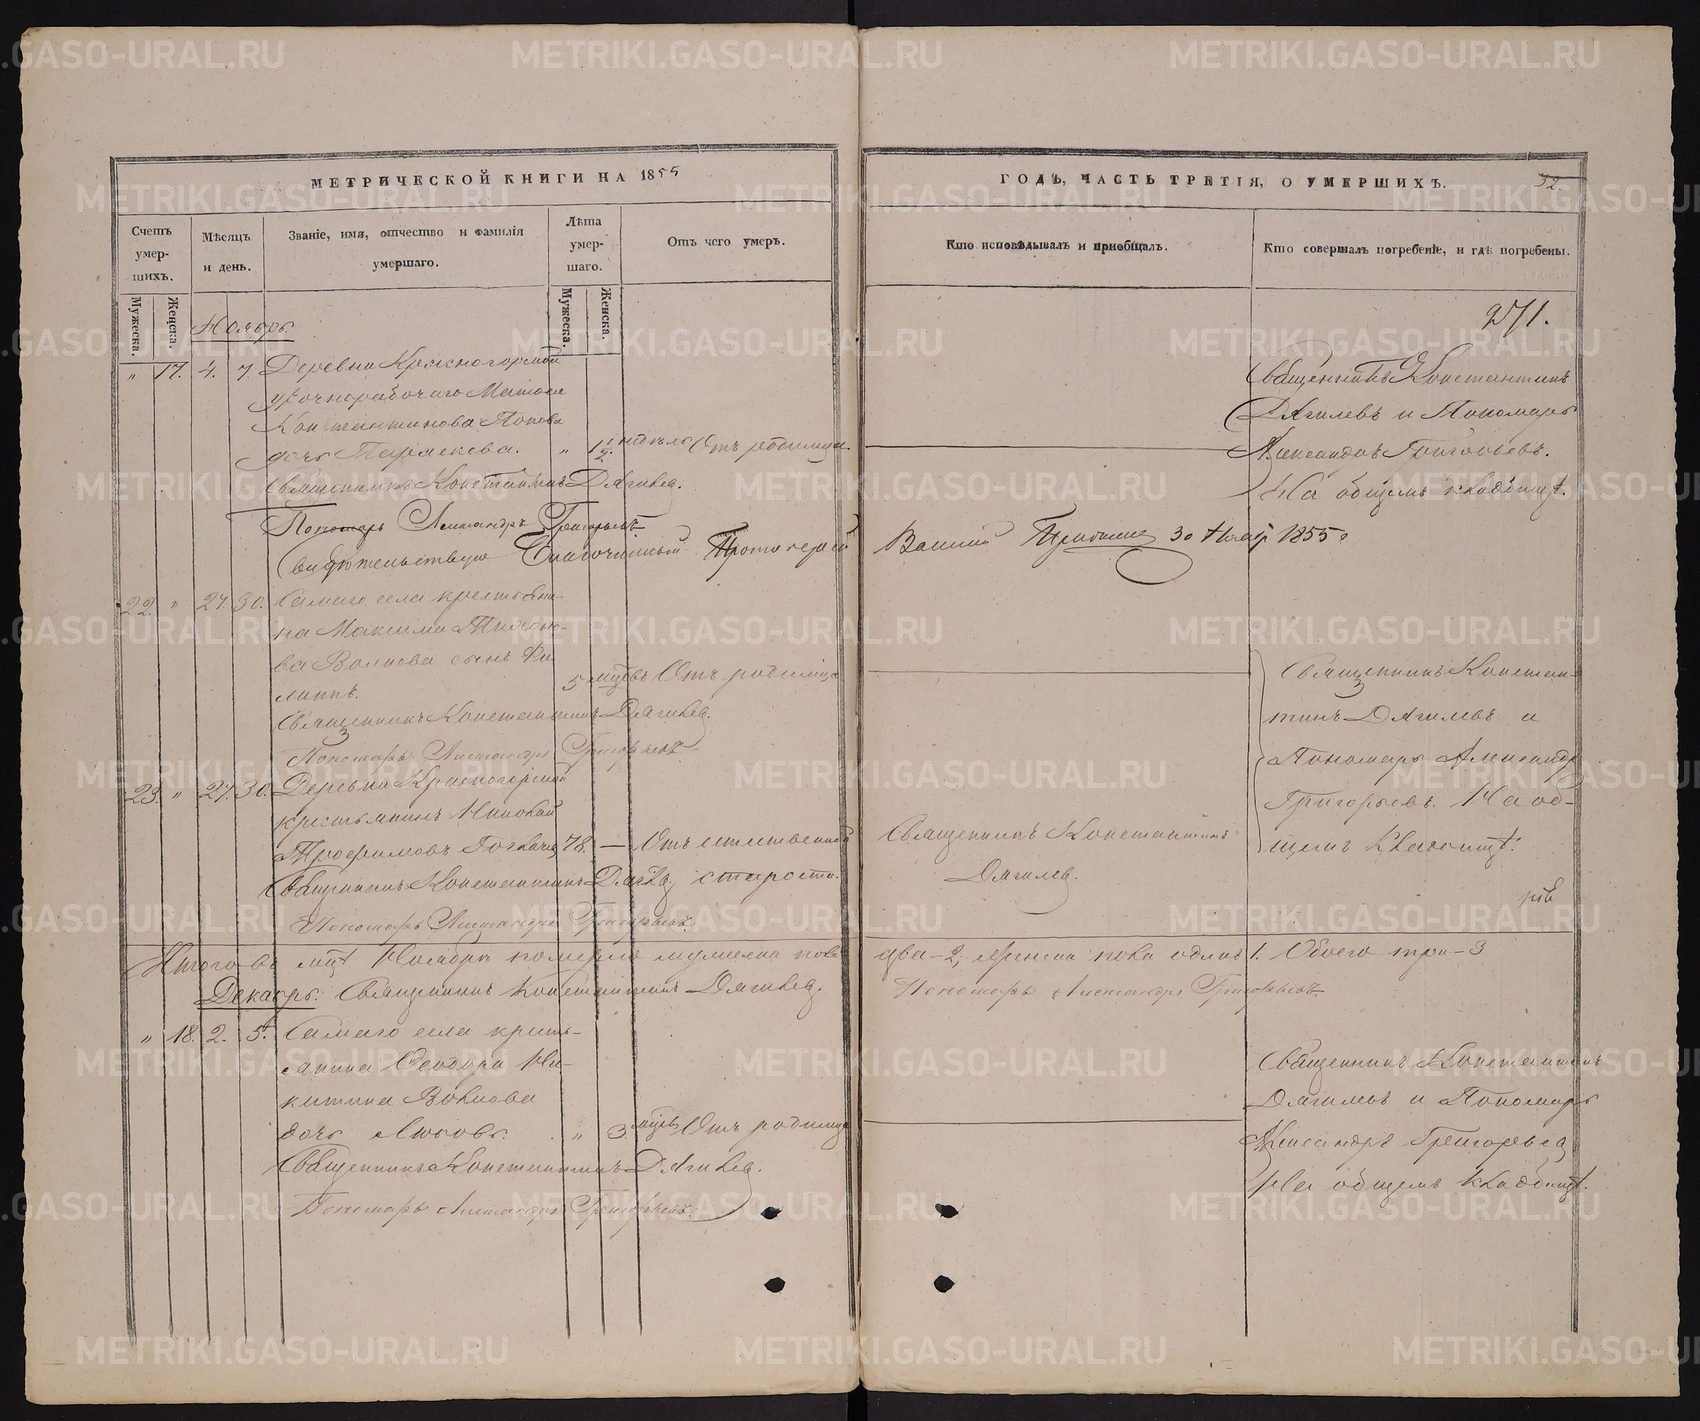 МЕТРИЧЕСКОЙ КНИГИ НА 1855
ГОДЪ, ЧАСТЬ ТРЕТІЯ, О УМЕРШИХЪ.
32.
Счетъ умер-шихъ.
Мужеска.
Женска.
Мѣсяцъ и день.
Званіе, имя, отчество и фамилія умершаго.
Лѣта умер-шаго.
Мужеска.
Женска.
Отъ чего умеръ.
Кто исповѣдывалъ и пріобщалъ.
Кто совершалъ погребеніе, и гдѣ погребены.
271.
Ноябрь
" 17. 4. 7. Деревни Красногорской
урочнорабочаго
Константинова Попова
дочь Параскева. " 1/2. недѣль Отъ родимца.
Священникъ Константинъ
Дягилевъ и Пономарь
Александръ Григорьевъ.
На общемъ кладбищѣ.
Священникъ Константинъ Дягилевъ.
Пономарь Александръ Григорьевъ
Свидѣтельствую Благочинный Протоіерей
30 Нояб. 1855 г
22. " 27. 30. Самаго села крестьяни-
на Максима
ва Волкова сынъ Фи-
липпъ. 5 мцовъ Отъ родимца
Священникъ Константинъ Дягилевъ.
Пономарь Александръ Григорьевъ
Священникъ Констан-
тинъ Дягилевъ и
Пономарь Александръ
Григорьевъ. На об-
щемъ кладбищѣ.
23. " 27. 30. Деревни Красногорской
крестьянинъ Николай
Трофимовъ 78. — Отъ естественной
старости.
Священникъ Константинъ
Дягилевъ.
Священникъ Константинъ Дягилевъ
Пономарь Александръ Григорьевъ.
Итого въ мцѣ Ноябрѣ померло мужеска пола
два – 2, женска пола одна 1. Обоего три – 3
Декабрь. Священникъ Константинъ Дягилевъ.
Пономарь Александръ Григорьевъ
" 18. 2. 5. Самаго села кресть-
янина Ѳеодора Ни-
китина Волкова
дочь Любовь. " 3. мцевъ Отъ родимца
Священникъ Константинъ
Дягилевъ и Пономарь
Александръ Григорьевъ
На общемъ кладбищѣ.
Священникъ Константинъ Дягилевъ.
Пономарь Александръ Григорьевъ.
METRIKI.GASO-URAL.RU